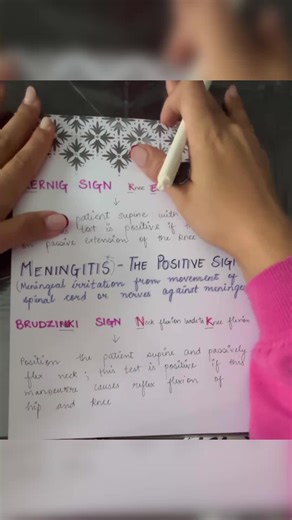 ERNIG SIGN Knee E
patient supine with
test is positive if
passive extension of the knee
MENINGITIS - THE POSITIVE SIG
(Meningeal irritation from movement of
spinal cord or nerves against meninge
BRUDZINKI SIGN Neck flexion leads to Knee flexion
Position the patient supine and passively
flex neck; this test is positive if this
manoeuvre causes reflex flexion of
hip and knee